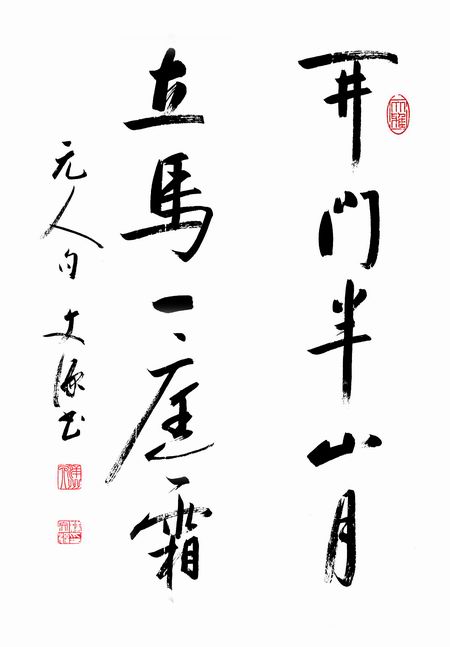 开門半山月
立馬一庭霜
元人句 文源书